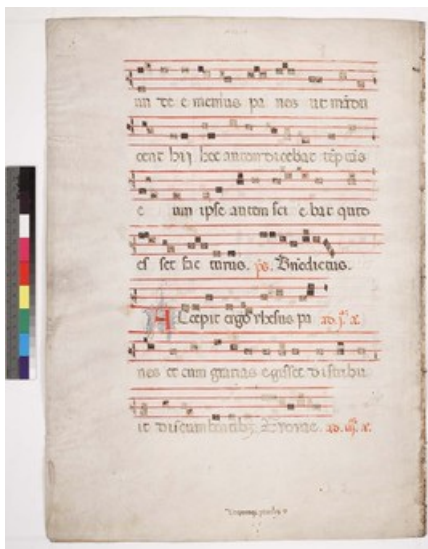 un de e memus pa nes ut mādu
cent hij hoc autem dicebat tēptās
e um ipse autem sci e bat quid
es set fac turus. ps. Bñedictus.
Accepit ergo ihesus pa ad
nes et cum gratias egisset distribu
it discumbentibȝ Evovae. ad